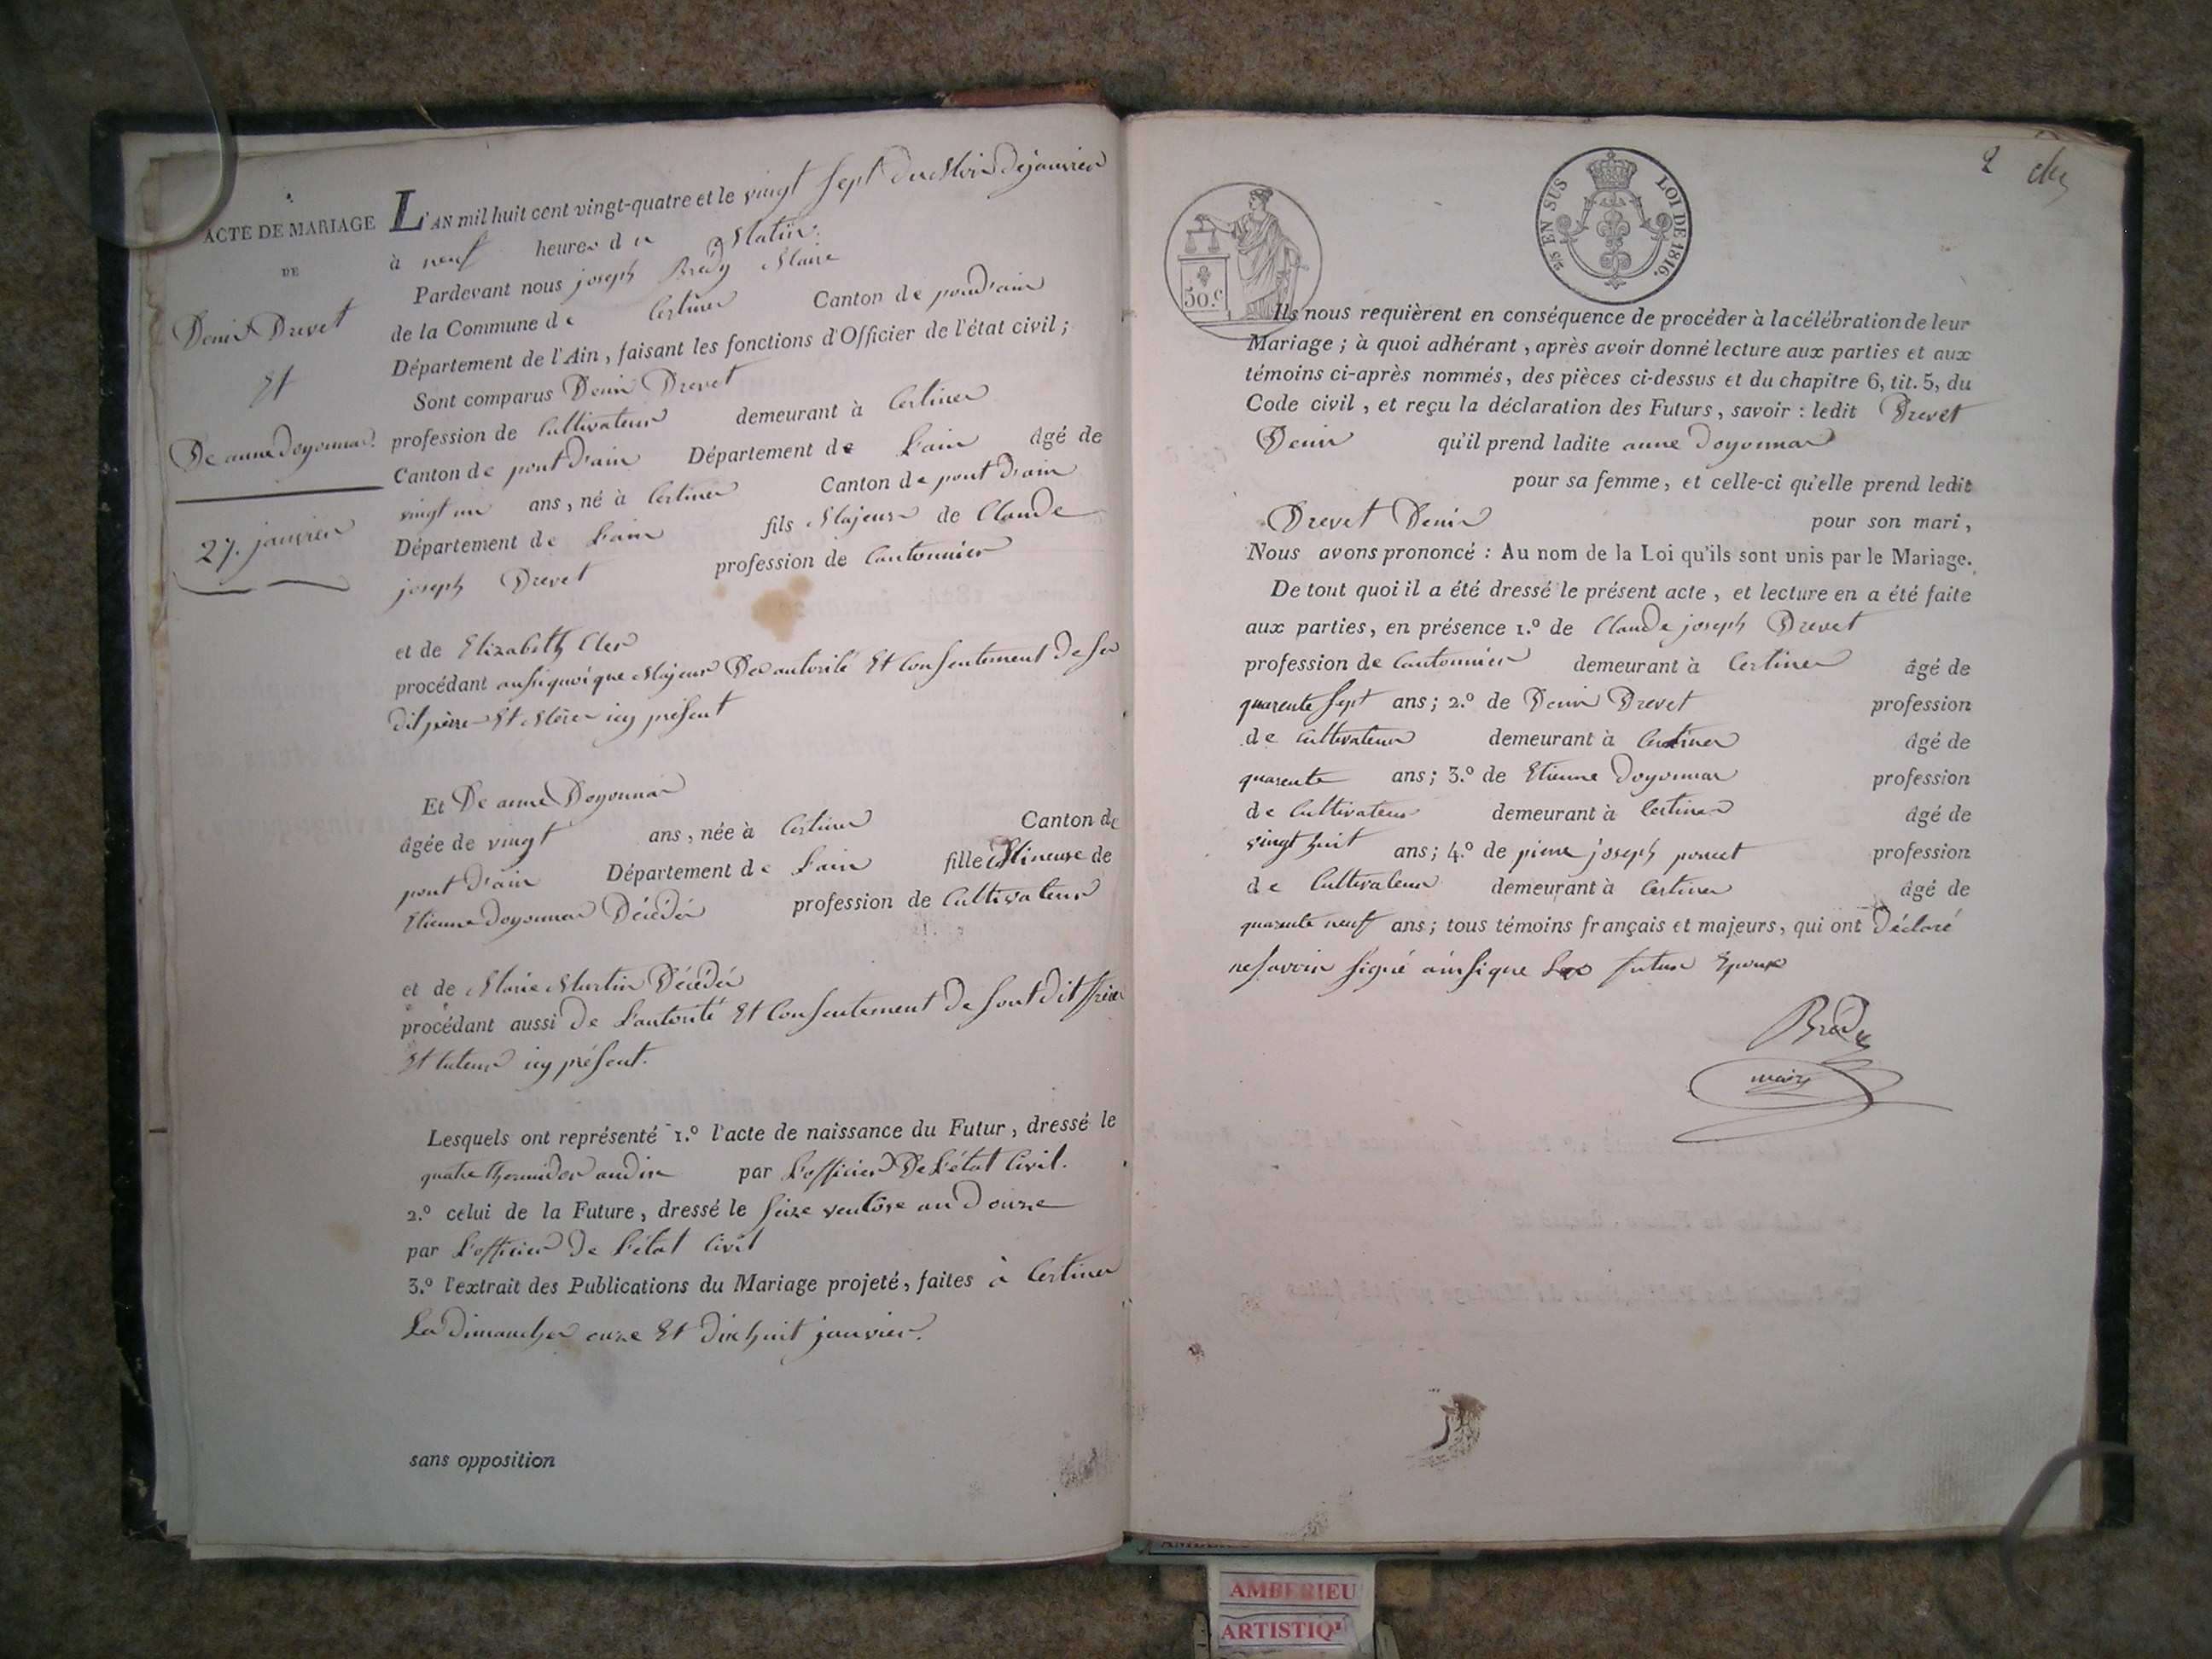 ACTE DE MARIAGE
DE
Denis Drevet
Et
De anne Doyonnas
27. janvier
L'AN mil huit cent vingt-quatre et le vingt sept du Mois de janvier
à neuf heures du Matin.
Pardevant nous joseph Bredy Maire
de la Commune de Certines Canton de pond'ain
Département de l'Ain, faisant les fonctions d'Officier de l'état civil;
Sont comparus Denis Drevet
profession de Cultivateur demeurant à Certines
Canton de pont d'ain Département de L'ain âgé de
vingt un ans, né à Certines Canton de pont d'ain
Département de L'ain fils Majeur de Claude
joseph Drevet profession de Cantonnier
et de Elizabeth Cler
procédant ausiquoique Majeur De autorité Et Consentement de ses
dit père Et Mère icy présent
Et De anne Doyonnas
âgée de vingt ans, née à Certines Canton de
pont d'ain Département de L'ain fille Mineure de
Etienne Doyonnas Décédés profession de Cultivateur
et de Marie Martin Décédés
procédant aussi de L'autorité Et Consentement de sont dit frère
Et tuteur icy présent.
Lesquels ont représenté 1.º l'acte de naissance du Futur, dressé le
quatre thermidor an dix par L'officier De L'état Civil.
2.º celui de la Future, dressé le seize ventôse an Douze
par L'officier de L'état Civil
3.º l'extrait des Publications du Mariage projeté, faites à Certines
Les dimanches onze Et dix huit janvier.
sans opposition
2
25 EN SUS LOI DE 1816.
50.c
Ils nous requièrent en conséquence de procéder à la célébration de leur
Mariage; à quoi adhérant, après avoir donné lecture aux parties et aux
témoins ci-après nommés, des pièces ci-dessus et du chapitre 6, tit. 5, du
Code civil, et reçu la déclaration des Futurs, savoir: ledit Drevet
Denis qu'il prend ladite anne Doyonnas
pour sa femme, et celle-ci qu'elle prend ledit
Drevet Denis pour son mari,
Nous avons prononcé: Au nom de la Loi qu'ils sont unis par le Mariage.
De tout quoi il a été dressé le présent acte, et lecture en a été faite
aux parties, en présence 1.º de Claude joseph Drevet
profession de Cantonnier demeurant à Certines âgé de
quarente sept ans; 2.º de Denis Drevet profession
de Cultivateur demeurant à Certines âgé de
quarente ans; 3.º de Etienne Doyonnas profession
de Cultivateur demeurant à Certines âgé de
vingt huit ans; 4.º de pierre joseph poncet profession
de Cultivateur demeurant à Certines âgé de
quarente neuf ans; tous témoins français et majeurs, qui ont Déclaré
ne savoir signé ainsi que Les futur Epoux
Bredy
maire
AMBERIEU
ARTISTIQ